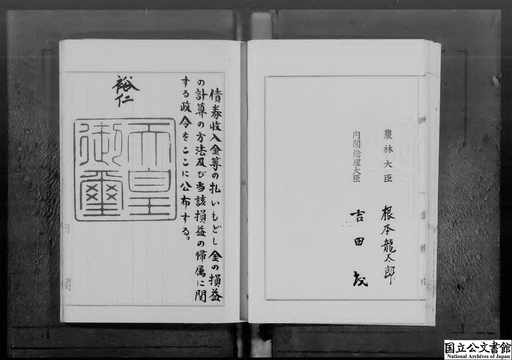 農林大臣　根本龍太郎
内閣総理大臣　吉田茂
債券收入金等の払いもどし金の損益
の計算の方法及び当該損益の帰属に関
する政令をここに公布する。
裕仁
天皇
御璽
国立公文書館
National Archives of Japan